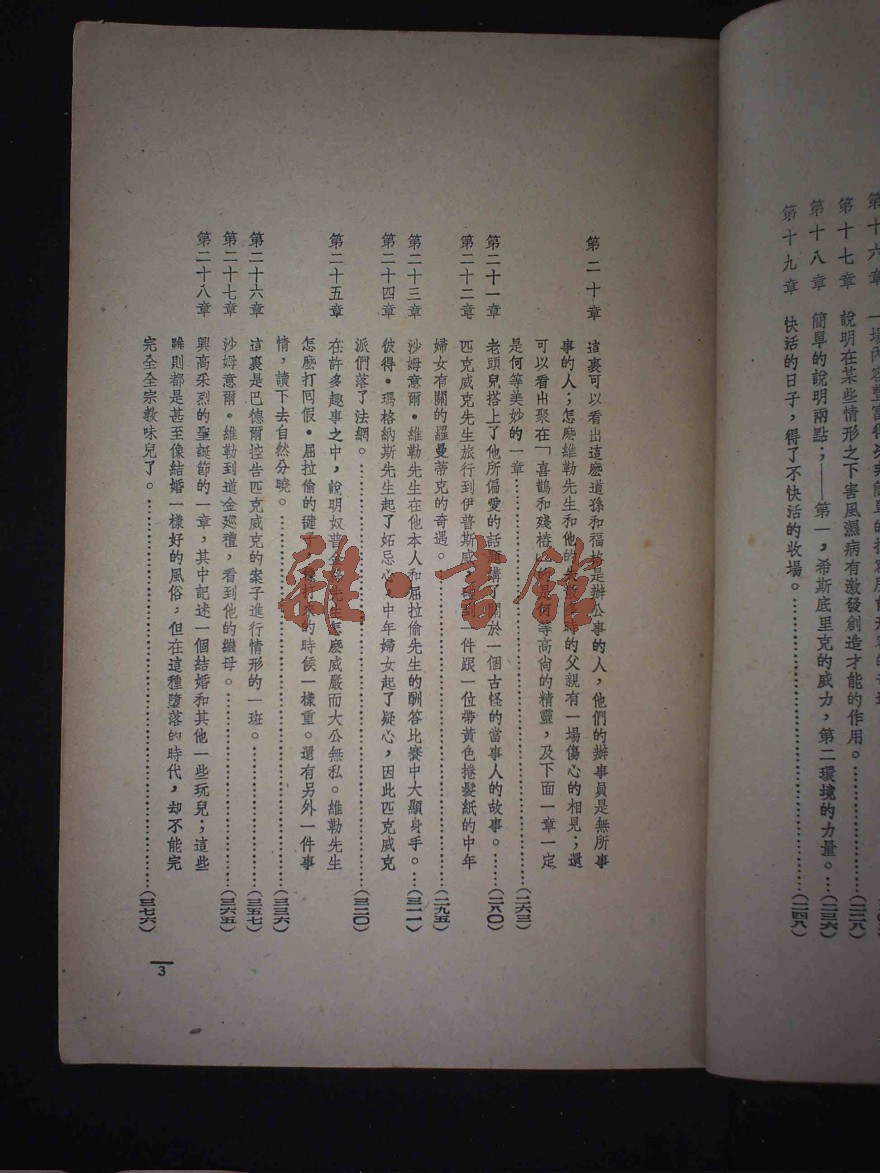 第十六章
第十七章 說明在某些情形之下害風濕病有激發創造才能的作用。……(二二八)
第十八章 簡單的說明兩點；——第一，希斯底里克的威力，第二環境的力量。…(二三六)
第十九章 快活的日子，得了不快活的收場。……(二四八)
第二十章 這裏可以看出這麽道孫和福格是辦公事的人，他們的辦事員是無所事
事的人；怎麽維勒先生和他的失散 時的父親有一場傷心的相見；還
可以看出聚在「喜鵲和殘樁」的是何等高尙的精靈，及下面一章一定
是何等美妙的一章……(二六三)
第二十一章 老頭兒搭上了他所偏愛的話題講了關於一個古怪的當事人的故事。……(二八〇)
第二十二章 匹克威克先生旅行到伊普斯威，碰到一件跟一位帶黃色捲髮紙的中年
婦女有關的羅曼蒂克的奇遇。……(二九五)
第二十三章 沙姆意爾•維勒先生在他本人和屈拉偷先生的酬答比賽中大顯身手。…(三一一)
第二十四章 彼得•瑪格納斯先生起了妬忌心，中年婦女起了疑心，因此匹克威克
派們落了法網。……(三二〇)
第二十五章 在許多趣事之中，說明奴普金 先生怎麽威嚴而大公無私。維勒先生
怎麽打囘假•屈拉偷的毽子 打來的時候一樣重。還有另外一件事
情，讀下去自然分曉。……(三三六)
第二十六章 這裏是巴德爾控告匹克威克的案子進行情形的一班。……(三五七)
第二十七章 沙姆意爾•維勒到道金廵禮，看到他的繼母。……(三六五)
第二十八章 興高采烈的聖誕節的一章，其中記述一個結婚和其他一些玩兒；這些
雖則都是甚至像結婚一樣好的風俗，但在這種墮落的時代，却不能完
完全全宗敎味兒了。……(三七六)
3
雜•書館